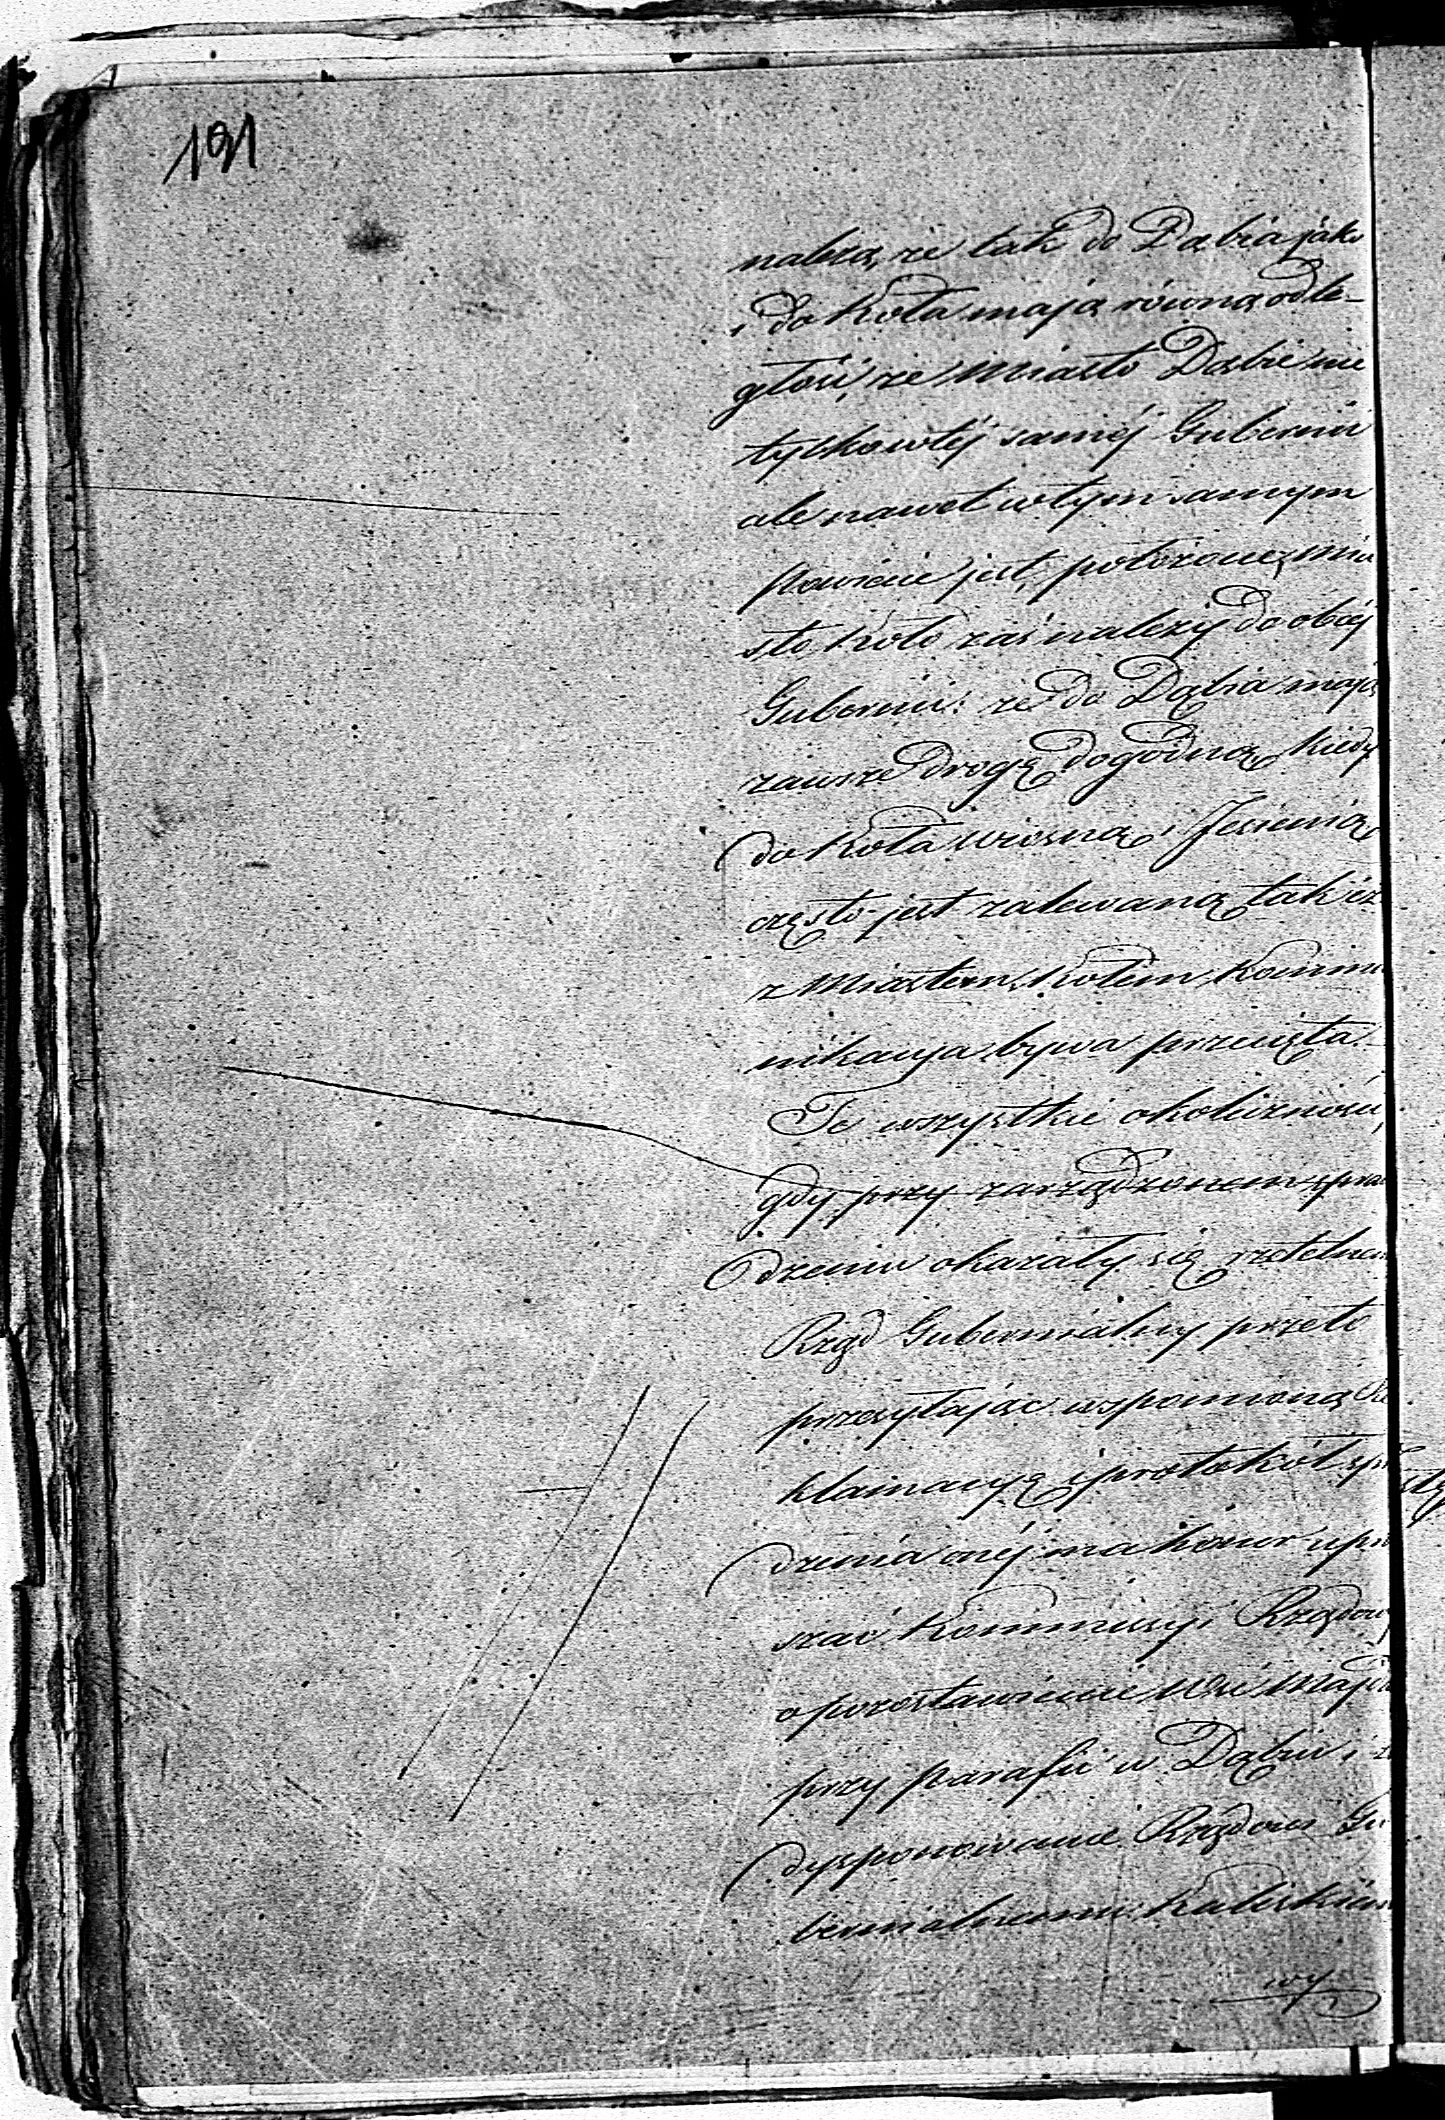 191
należą, że tak do Dąbia jako
i do Koła mają równą odle-
głość, że Miasto Dąbie nie
tylko w téj saméj Gubernii
ale nawet w tym samym
Powiecie jest położone, mia
sto Koło zaś należy do obcéj
Gubernii: że do Dąbia mają
zawsze drogę dogodną, kiedy
do Koła wiosną i Jesienią
często jest zalewaną tak iż
z Miastem Kołem Kommu
nikacya bywa przecięta.
Te wszystkie okoliczności,
gdy przy zarządzonem spraw
dzeniu okazały się rzetelnemi
Rząd Gubernialny przeto
przesyłając wspomnioną Re
klamacyę i protokół spraw
dzenia onéj ma honor upra
szać Kommissyi Rządowéj
o pozostawienie Wsi Majd
przy Parafii w Dąbiu i za
dysponowanie Rządowi Gu
bernialnemu Kaliskiemu
wy